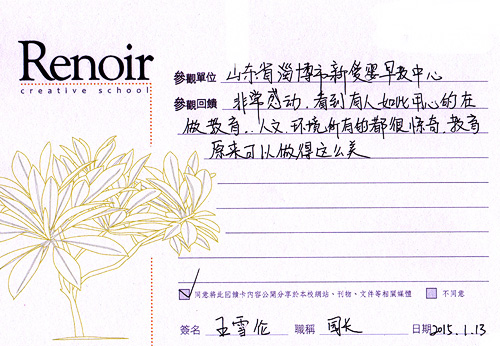 Renoir
creative school
參觀單位 山东省淄博市新愛嬰早教中心
參觀回饋 非常感动,看到有人如此用心的在
做教育,人文、环境所有的都很惊奇,教育
原来可以做得这么美
同意將此回饋卡內容公開分享於本校網站、刊物、文件等相關媒體 不同意
簽名 王雪伦 職稱 园长 日期2015.1.13